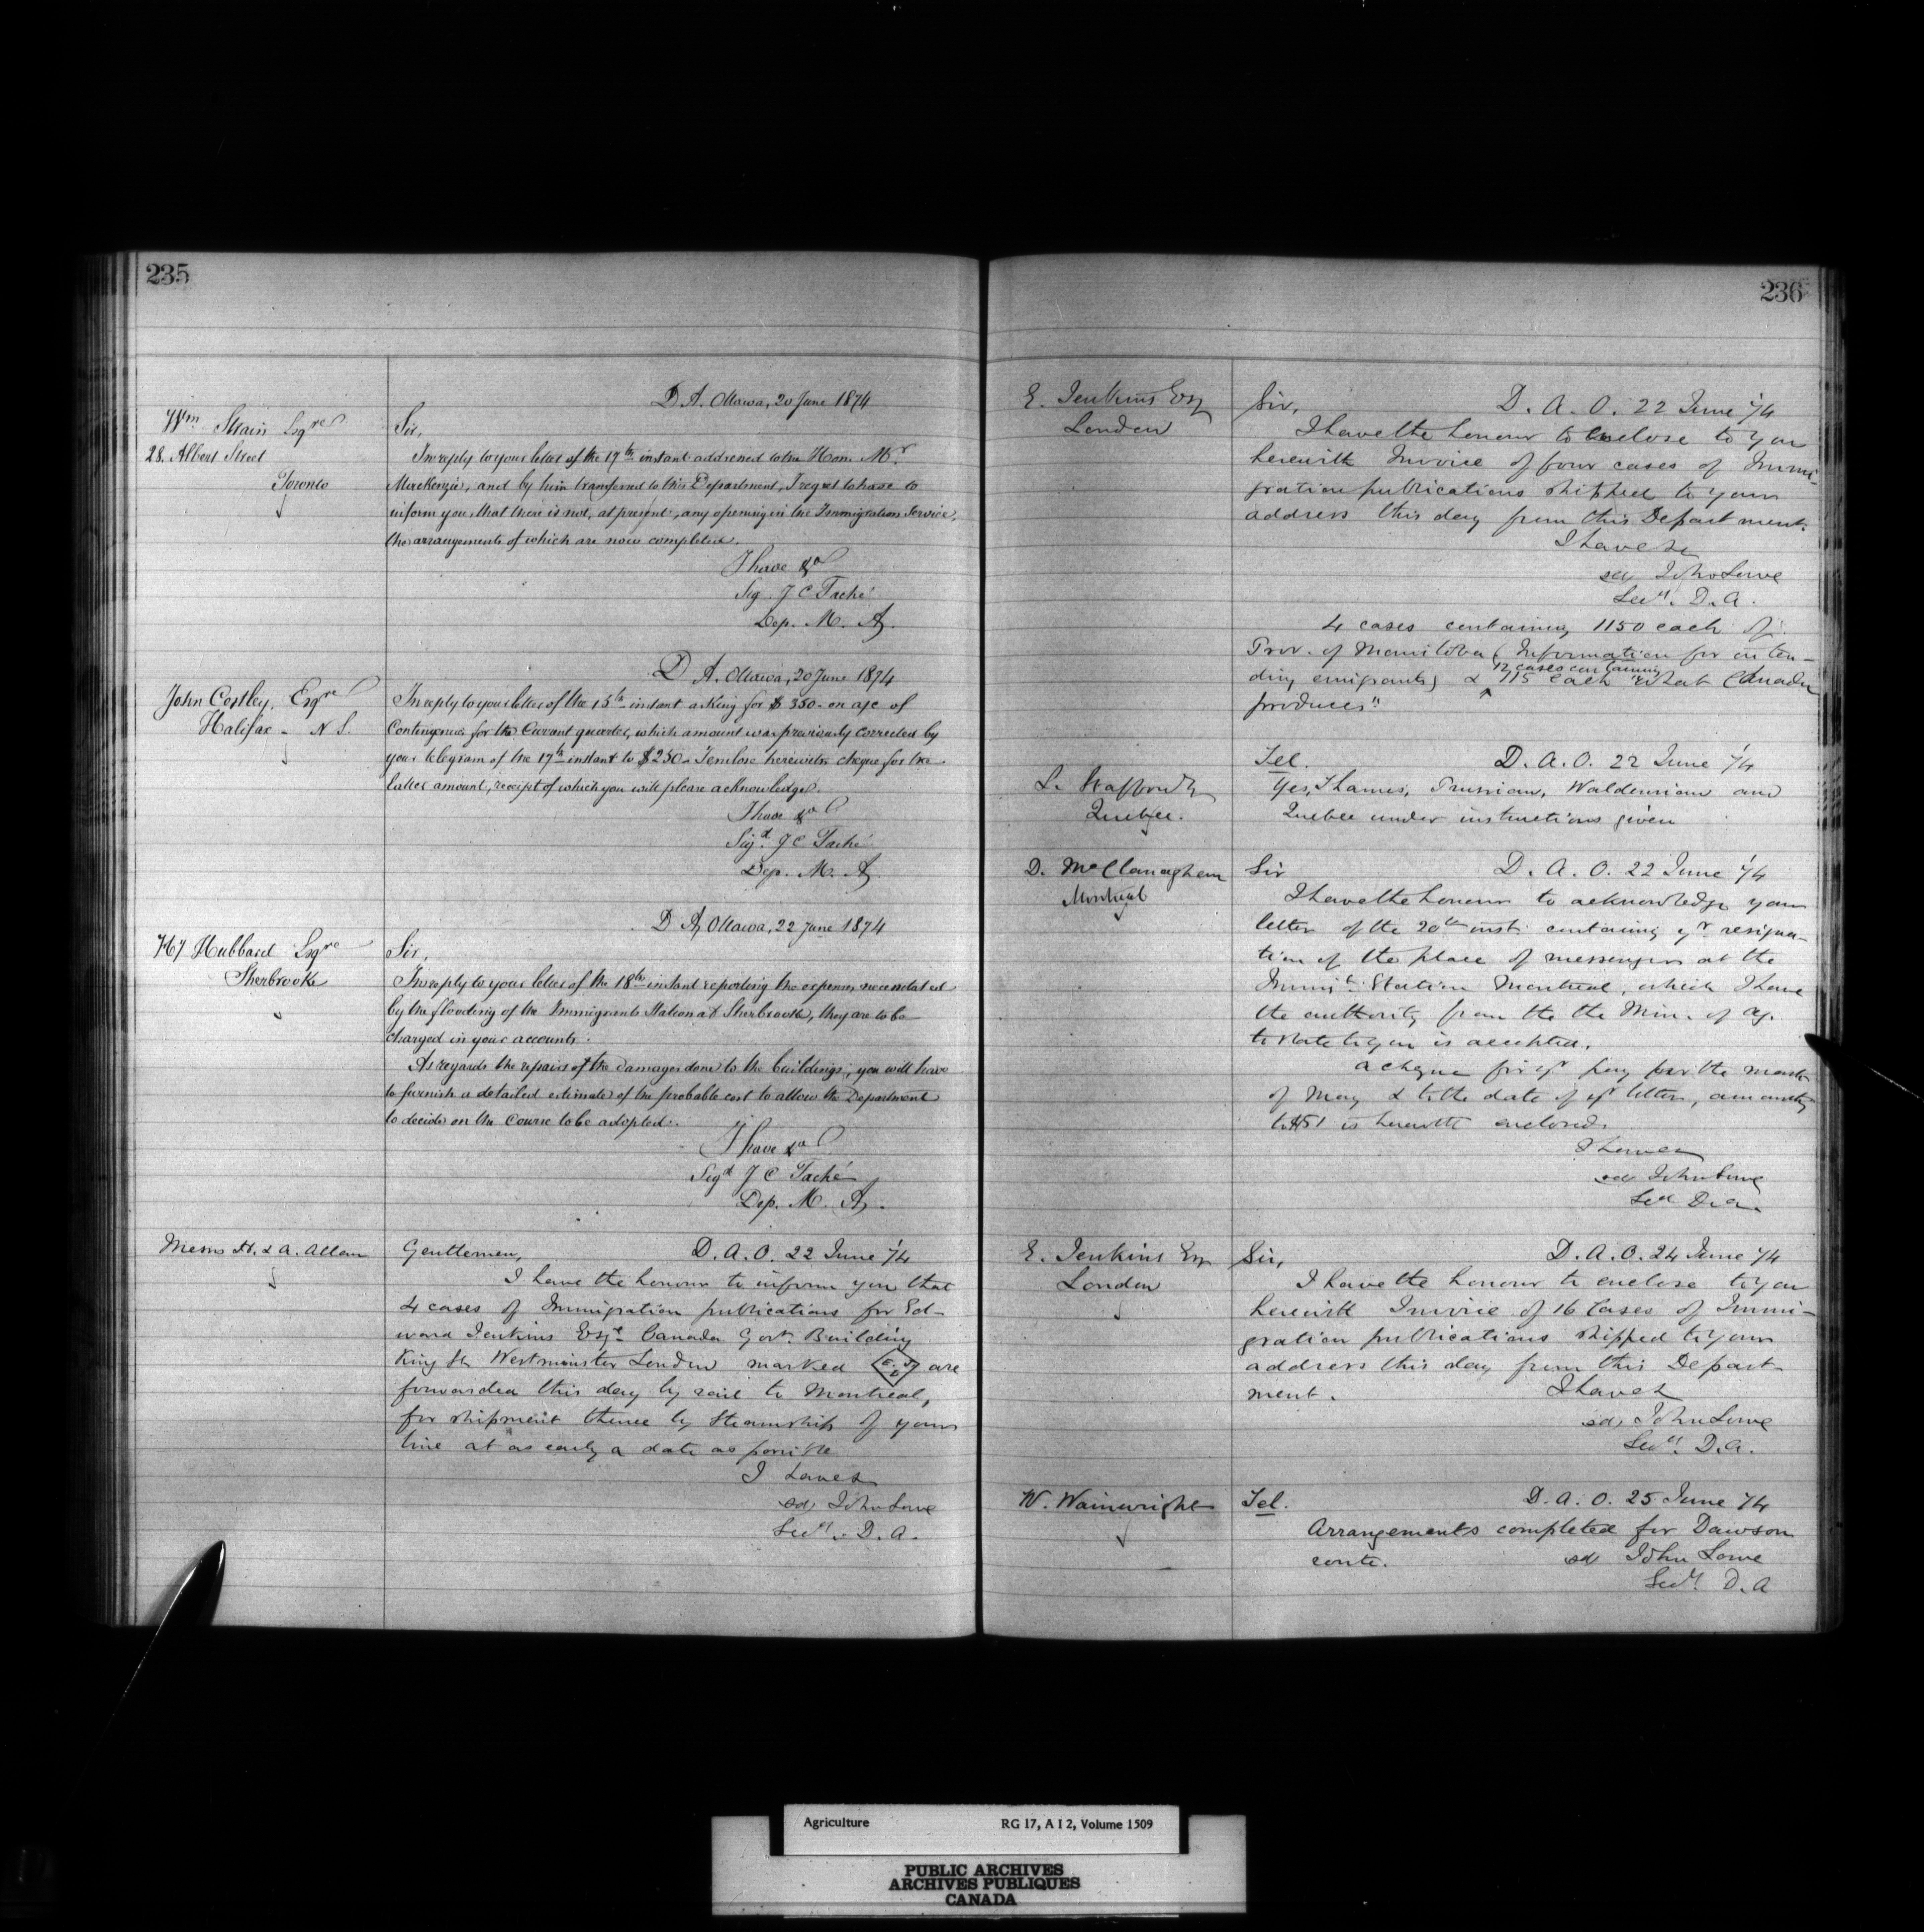 235
D A. Ottawa, 20 June 1874
Wm Strain Esqre
28. Albert Street
Toronto
Sir,
In reply to your letter of the 17th instant addressed to the Hon. Mr
MacKenzie, and by him transferred to this Department, I regret to have to
inform you, that there is not, at present, any opening in the Immigration Service,
the arrangements of which are now completed.
I have &a
Sig. J C Taché
Dep. M. A.
D A. Ottawa, 20 June 1874
John Costley, Esqre
Halifax - N S.
In reply to your letter of the 15th instant asking for $350 - on a/c of
Contingencies for the Current quarter, which amount was previously corrected by
your telegram of the 17th instant to $250 - I enclose herewith cheque for the
latter amount, receipt of which you will please acknowledge.
I have &a
Sigd. J C Taché
Dep. M. A.
D A, Ottawa, 22 June 1874
Hy Hubbard Esqre
Sherbrooke
Sir,
In reply to your letter of the 18th instant reporting the expenses necessitated
by the flooding of the Immigrants Station at Sherbrooke, they are to be
charged in your accounts.
As regards the repairs of the damages done to the buildings, you will have
to furnish a detailed estimate of the probable cost to allow the Department
to decide on the course to be adopted.
I have &a
Sigd J C Taché
Dep. M. A.
Messrs H. & A. Allan
Gentlemen, D. A. O. 22 June /74
I have the honour to inform you that
4 cases of Immigration publications for Ed-
ward Jenkins Esqe Canada Govt. Building
King St. Westminster London marked E. J. L are
forwarded this day by rail to Montreal,
for shipment thence by Steamship of your
line at as early a date as possible
I have &
sd, John Lowe
Secy. D. A.
236
E. Jenkins Esq
London
Sir, D. A. O. 22 June /74
I have the honour to enclose to you
herewith Invoice of four cases of Immi-
gration publications shipped to your
address this day from this Department.
I have &
sd John Lowe
Secy. D. A.
4 cases containing 1150 each of
Prov. of Manitoba (Information for inten-
12 cases containing
ding emigrants) & 115 each "What Canada
produces"
Tel. D. A. O. 22 June /74
L. Stafford
Quebec.
Yes, Thames, Prussian, Waldensian and
Quebec under instructions given
D. McClanaghan
Montreal
Sir D. A. O. 22 June /74
I have the honour to acknowledge your
letter of the 20th inst. containing yr resigna-
tion of the place of messenger at the
Immigt. Station Montreal, which I have
the authority from the the Min. of Ag.
to state to you is accepted.
A cheque for yr pay for the month
of May & to the date of yr letter, amounting
to $51 is herewith enclosed.
I have &
sd John Lowe
Secy D. A.
E. Jenkins Esq
London
Sir, D. A. O. 24 June /74
I have the honour to enclose to you
herewith Invoice of 16 Cases of Immi-
gration publications shipped to your
address this day from this Depart-
ment. I have &
sd, John Lowe
Secy. D. A.
W. Wainwright
Tel. D. A. O. 25 June /74
Arrangements completed for Dawson
route. sd John Lowe
Secy D. A
Agriculture RG 17, A I 2, Volume 1509
PUBLIC ARCHIVES
ARCHIVES PUBLIQUES
CANADA